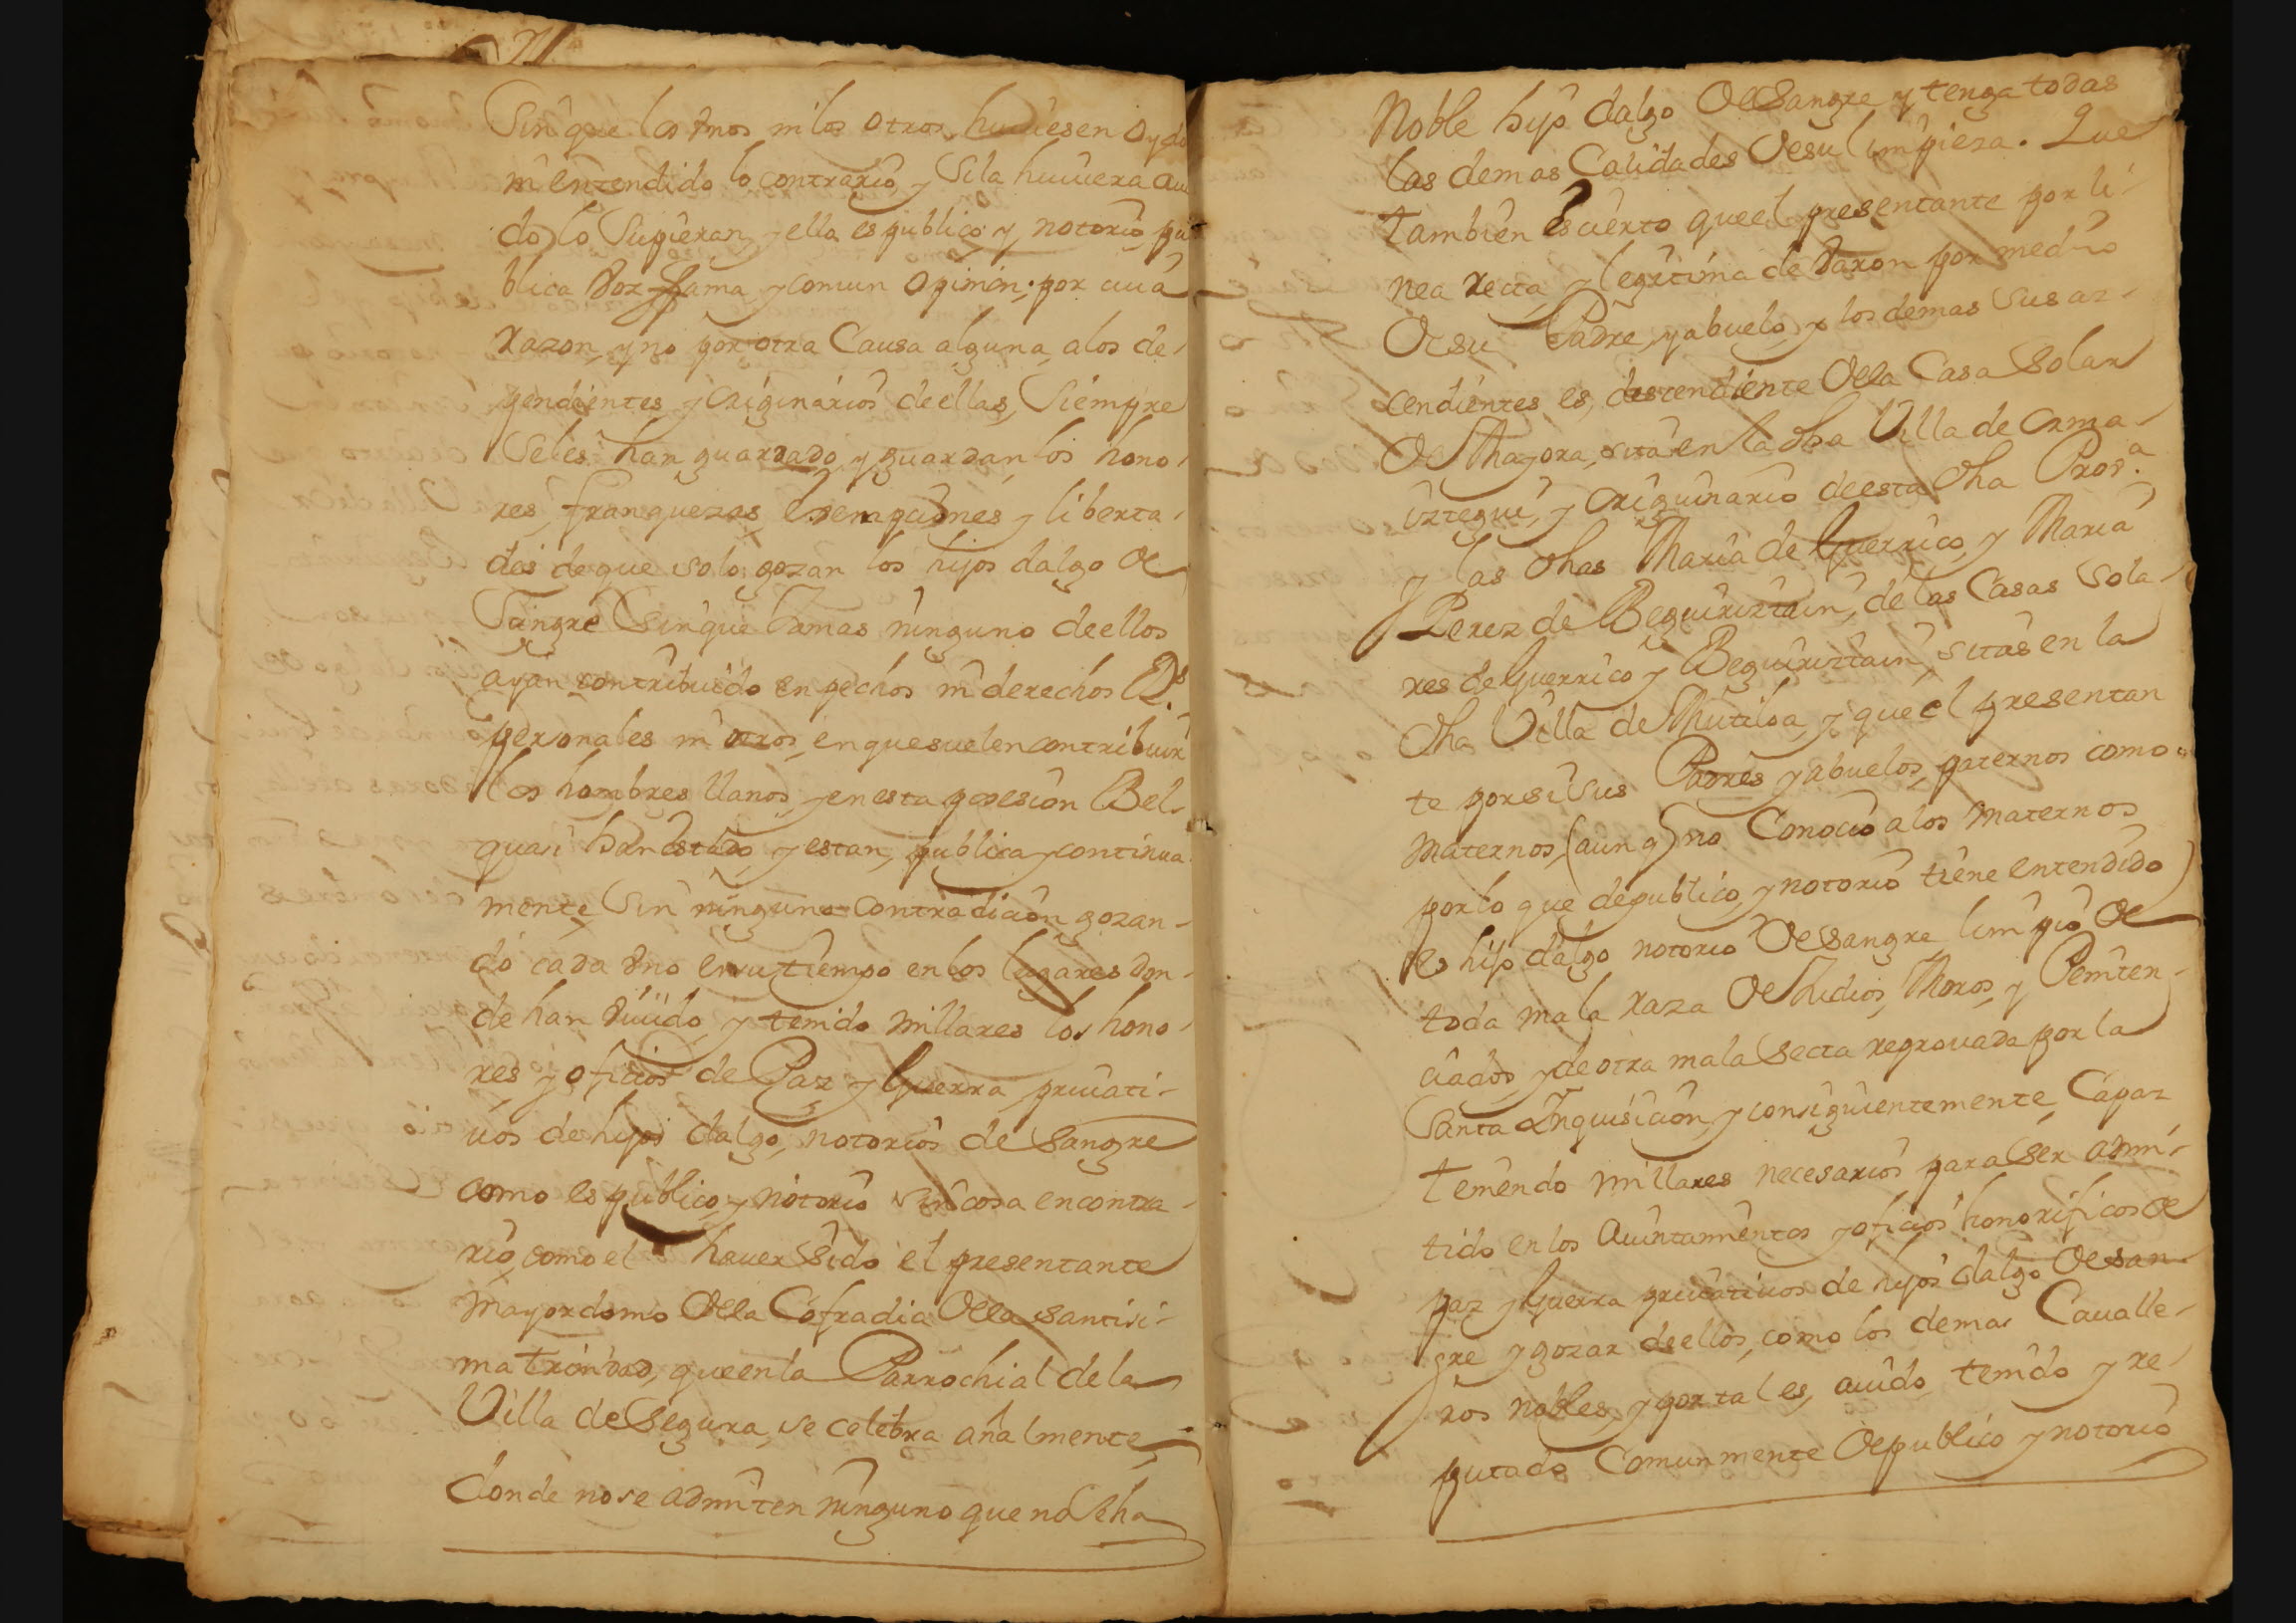 Sin que los vnos ni los otros huuiesen oydo
ni entendido lo contrario, y si la huuiera auí
do, lo supieran, y ella es publico y notorio, pu
blica voz y fama, y comun opinion; por cuia
razon, y no por otra Causa alguna, a los de-
pendientes y originarios de ellas, siempre
se les han guardado y guardan los hono-
res, franquezas, exempciones y liberta-
des de que solo gozan los hijos dalgo de
Sangre Sin que Jamas ninguno de ellos
ayan contribuido en pechos ni derechos Rs
personales ni otros, en que suelen contribuir
los hombres llanos, y en esta posesion Bel-
quasi han estado, y estan, publica y continua
mente Sin ninguna contradicion gozan-
do cada vno en su tiempo en los lugares don-
de han viuido, y tenido millares los hono-
res, y oficios de Paz y Guerra priuati-
uos de hijos dalgo, notorios de Sangre
como es publico, y notorio sin cosa en contra-
rio, como el hauer Sido el presentante
Mayordomo de la Cofradia de la santisi-
ma trinidad, que en la Parrochial de la
Villa de Segura, se celebra añalmente,
donde no se admiten ninguno que no seha
Noble hijo dalgo de Sangre, y tenga todas
las demas Calidades de su limpieza. Que
tambien es cierto que el presentante por li-
nea recta y legitima de varon por medio
de su Padre, y abuelo, y los demas sus az-
cendientes es, descendiente de la Casa Solar
de Mayora, sita en la dha Villa de orma-
iztegui, y originario de esta dha Prov.a
y las dhas Maria de Guerrico, y Maria
Perez de Beguiriztain, de las Casas Sola-
res de Guerrico y Beguiriztain, sitas en la
dha Villa de Mutiloa, y que el presentan
te por si sus Padres y abuelos, paternos como
Maternos, (aun q no Conocio a los Maternos
por lo que de publico, y notorio tiene entendido)
es hijo dalgo notorio de sangre limpio de
toda mala raza de Judios, Moros, y Peniten-
ciados, y de otra mala secta reprouada por la
Santa Inquisicion, y consiguientemente, Capaz
teniendo millares necesarios para ser admi-
tido en los Auintamientos y oficios honorificos de
paz y Guerra priuatiuos de hijos dalgo de san-
gre y gozar de ellos, como los demas Caualle-
ros nobles, y por tales, auido, tenido y re-
putado Comunmente de publico y notorio